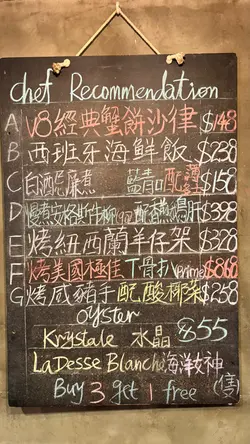 Chef Recommendation
A V8經典蟹餅沙律 $148
B 西班牙海鮮飯 $238
C 白酒忌廉煮 藍青口配薯 $158
D 慢煮安格斯牛柳 配香煎鵝肝 $398
E 烤紐西蘭羊仔架 $328
F 烤美國極佳 下骨扒 (Prime) $868
G 烤咸豬手 配酸椰菜 $258
oyster
Krystale 水晶 @$55
LaDesse Blanche 海洋女神
Buy 3 get 1 free (隻)